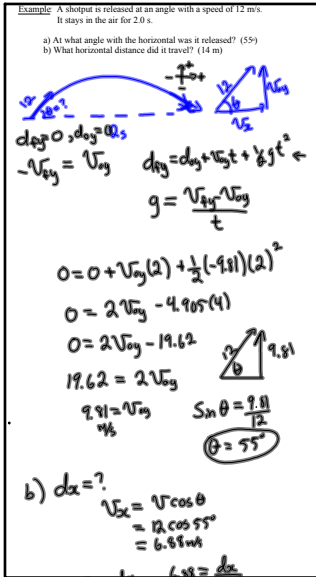 Example A shotput is released at an angle with a speed of 12 m/s.
It stays in the air for 2.0 s.
a) At what angle with the horizontal was it released? (55º)
b) What horizontal distance did it travel? (14 m)
12
θ=?
- +
12
θ
Voy
Vx
dfy=0, doy=0
2s
-Vfy = Voy
dfy = doy + Voyt + ½gt²
g = Vfy-Voy / t
0 = 0 + Voy(2) + ½(-9.81)(2)²
0 = 2Voy - 4.905(4)
0 = 2Voy - 19.62
19.62 = 2Voy
9.81 = Voy
m/s
12
9.81
θ
Sin θ = 9.81 / 12
θ = 55°
b) dx = ?
Vx = V cos θ
= 12 cos 55°
= 6.88 m/s
6.88 = dx